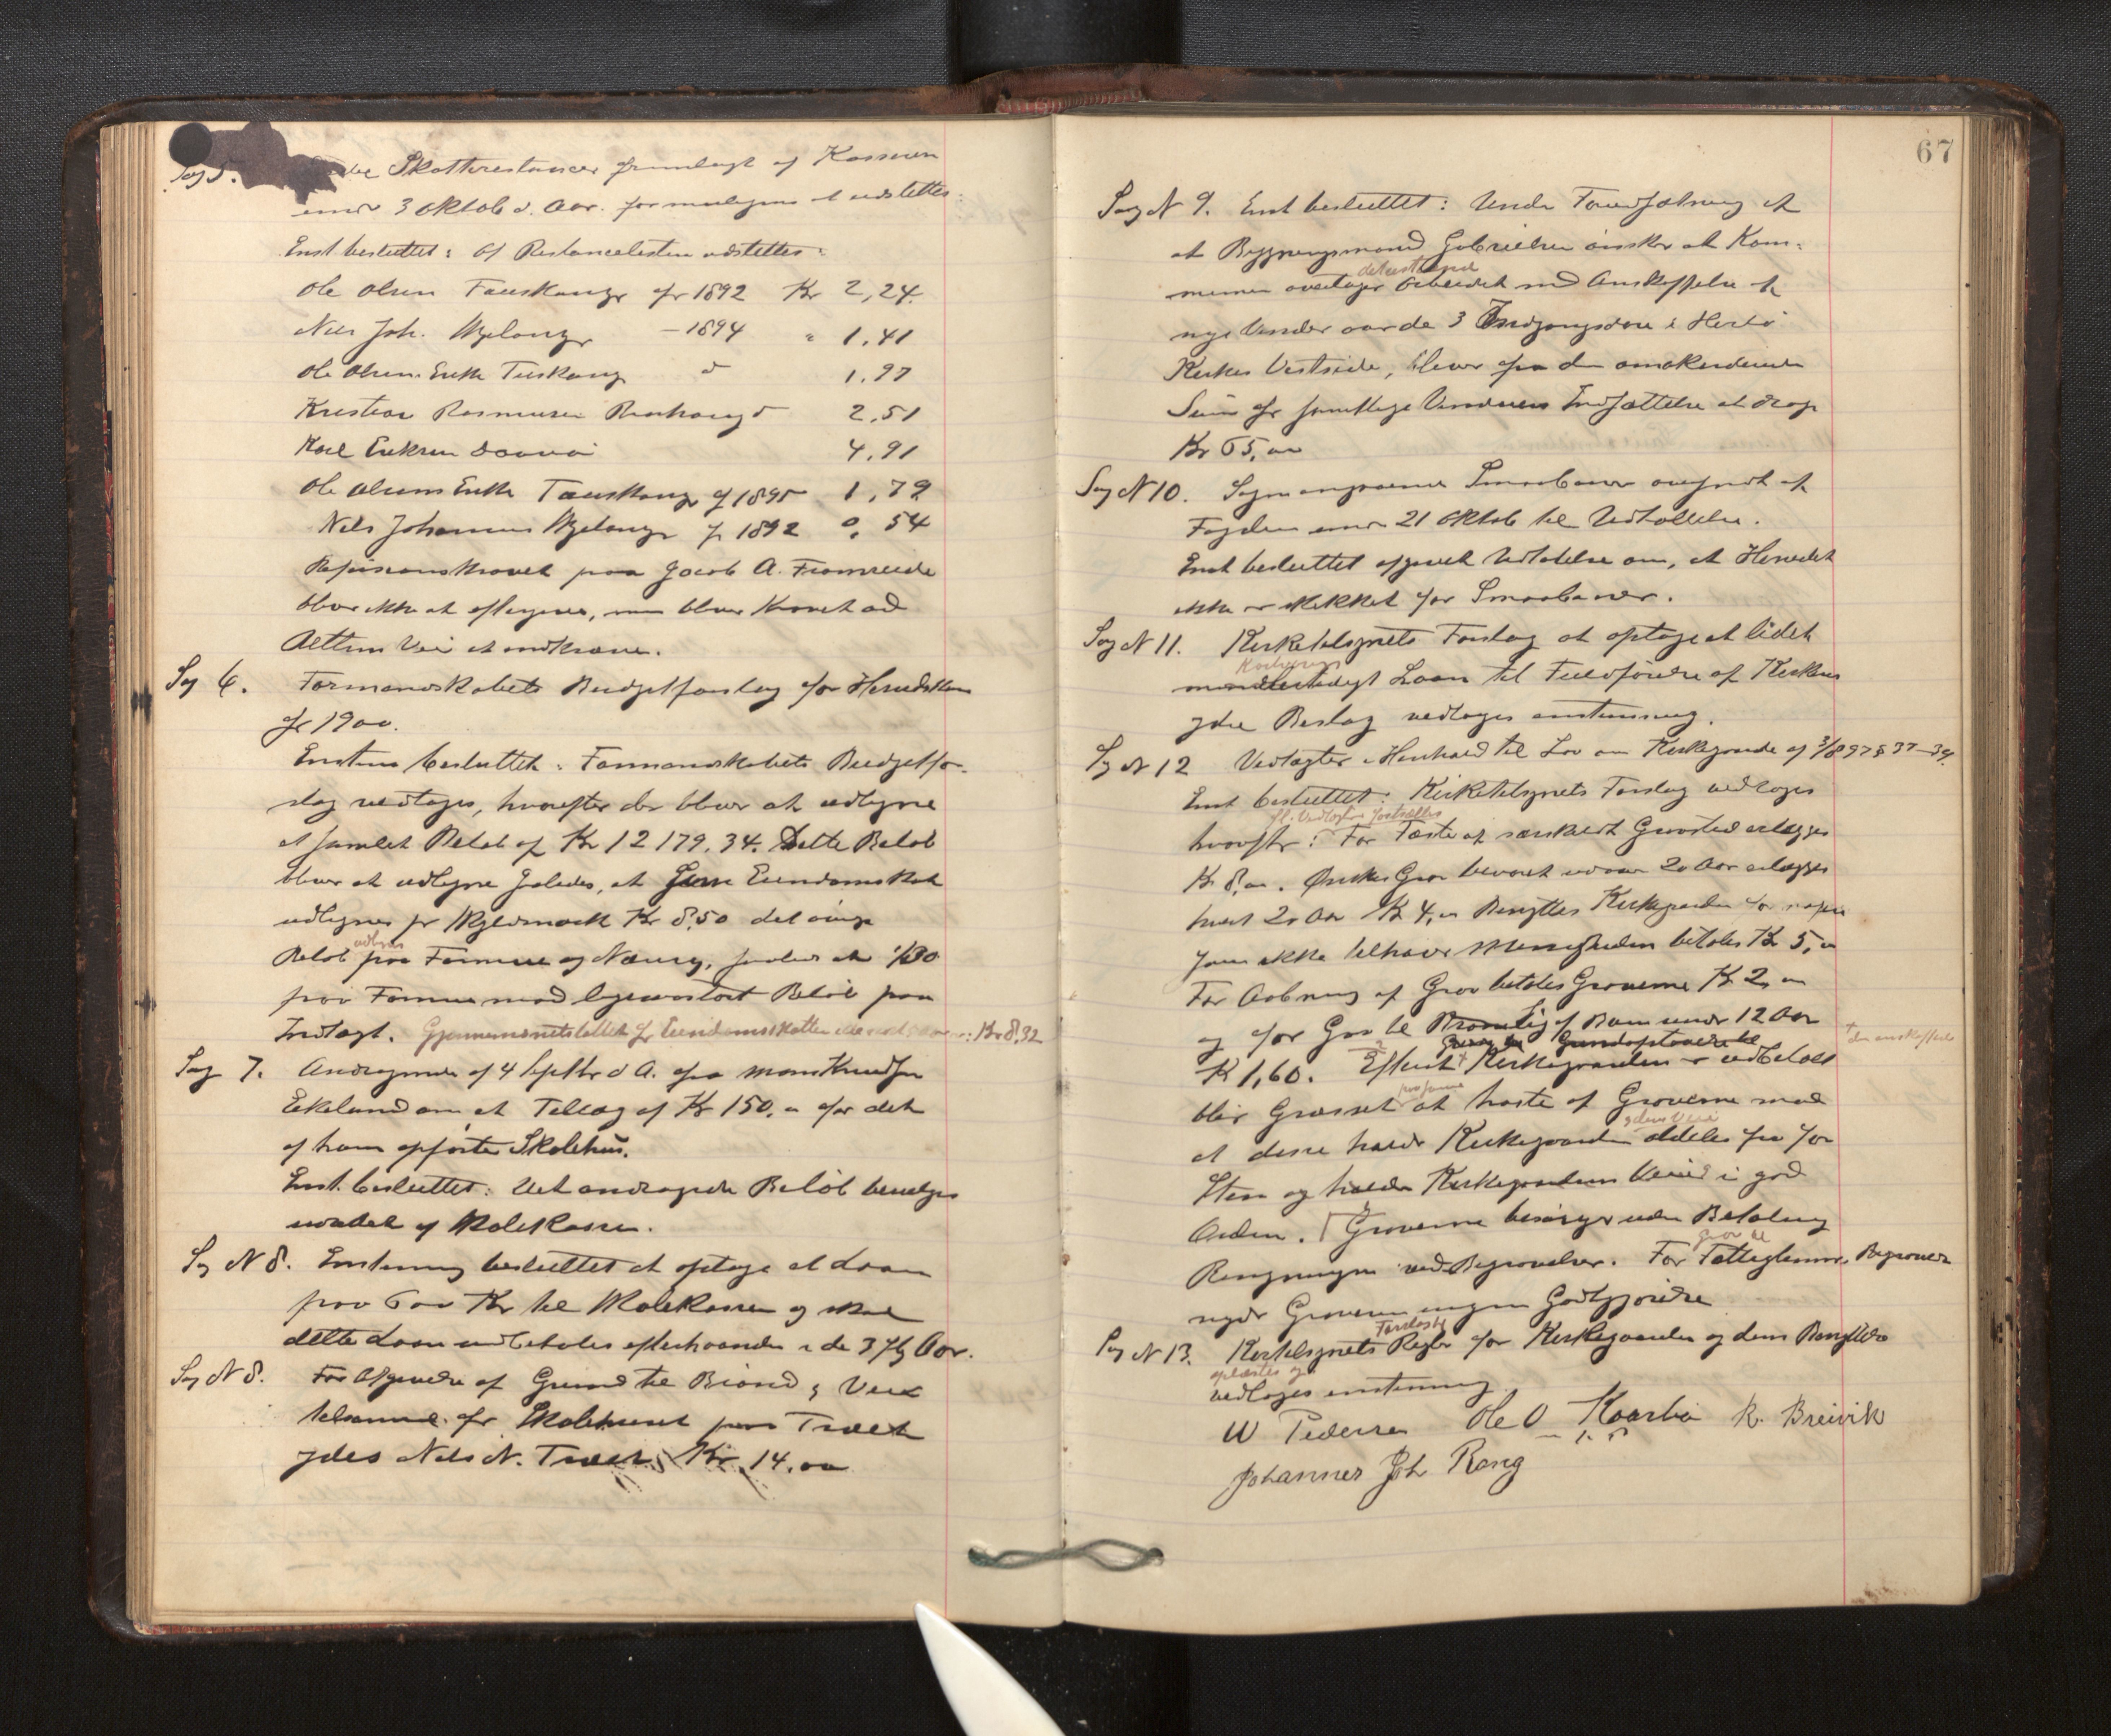 Sag 5. Skatterestancer fremlagt af Kasseren
under 3 Oktob d. Aar. formentligens at udslettes.
Enst. besluttet: Af Restancelisten udslettes:
Ole Olsen Fauskanger for 1892 Kr 2,24.
Nils Joh. Mjelanger – 1894 " 1.41
Ole Olsens Enke Tuskang d 1.97
Kristian Rasmussen Ramhaug d 2.51
Karl Eriksen 4.91
Ole Olsens Enke Fauskang f 1895 1,79
Nels Johannes Mjelanger f 1892 0,54
Refusionskravet paa Jacob A. Fromreide
bliver ikke at eftergives, men bliver Kravet ad
Rettens Vei at inddrive.
Sag 6. Formandskabets Budgetforslag for Herredskassen
for 1900.
Enstem besluttet: Formandskabets Budgetfor-
slag vedtages, hvorefter der bliver at udligne
et samlet Beløb af Kr 12 179.34. Dette Beløb
bliver at udligne saaledes, at Eiendomsskat
udlignes pr Skyldmark Kr 8,50 det øvrige
Beløb udlignes paa Formue og Næring, saaledes at 1/30
paa Formue mod ligesaastort Beløb paa
Indtægt. Gjennemsnitstallet for Eiendomsskatten Kr 8,32
Sag 7. Andragende af 4 Septbr d A. fra Mons Knudsen
Ekeland om et Tillæg af Kr 150,00 for det
af ham opførte Skolehus.
Enst. besluttet: Det andragede Beløb bevilges
udbetalt af Skolekassen.
Sag N 8. Enstemmig besluttet at optage et Laan
paa 600 Kr til Skolekassen og skal
dette Laan indbetales efterhaanden i de 3 flg Aar.
Sag N 8. For Afgivelse af Grund til Brønd & Vei
for Skolehuset paa Tveit
ydes Nils N. Tveit Kr. 14.00
67
Sag N 9. Enst besluttet: Under Forudsætning af
at Bygningsmand Gabrielsen ønsker at Kom-
munen overtager Arbeidet med Anskaffelse af
nye Vinder over de 3 Indgangsdøre i Herlø
Kirkes Vestside, bliver fra den omakorderede
Sum for samtlige Vinduers Indsættelse at drage
Kr 65,00
Sag N 10. Smaabaner oversendt af
Fogden under 21 Oktob til Udtallelse.
Enst besluttet afgivet Udtalelse om, at Herredet
ikke er skikket for Smaabaner.
Sag N 11. Kirketilsynets Forslag at optage et lidet
Laan til Fuldførelse af Kirkens
ydre Beslag vedtages enstemmig.
Sag N 12 Vedtægter i Henhold til Lov om Kirkegaarde af 3/8 97 § 37–39.
Enst besluttet: Kirketilsynets Forslag vedtages
fl. Vedtægter fastsættes
hvorefter: For Fæste af særskildt Gravsted erlægges
Kr 8,00. Ønskes Grav bevaret udover 20 Aar erlægges
hvert 20 Aar Kr 4,00 Benyttes Kirkegaarden for nogen
som ikke tilhører Menigheden betales Kr 5,00
For Aabning af Grav betales Graverne Kr 2,00
og for Grav til Barn under 12 Aar
Kr 1,60. Kirkegaarden er udbetalt
bliver Græsset at høste af Graverne mod
at disse holder Kirkegaarden aldeles fri for
Sten og holder Kirkegaardens Veie i god
Orden. Graverne besørger uden Betaling
Ringningen ved Begravelser. For Grav til Fattiglemmers Begravelse
nyder Graveren ingen Godtgjørelse
Sag N 13. Kirketilsynets Forslag Regler for Kirkegaarden og dens Benyttelse
oplæstes og
vedtages enstemmig
W Pedersen Ole O Kaarbø R. Breivik
Johannes Joh Rong